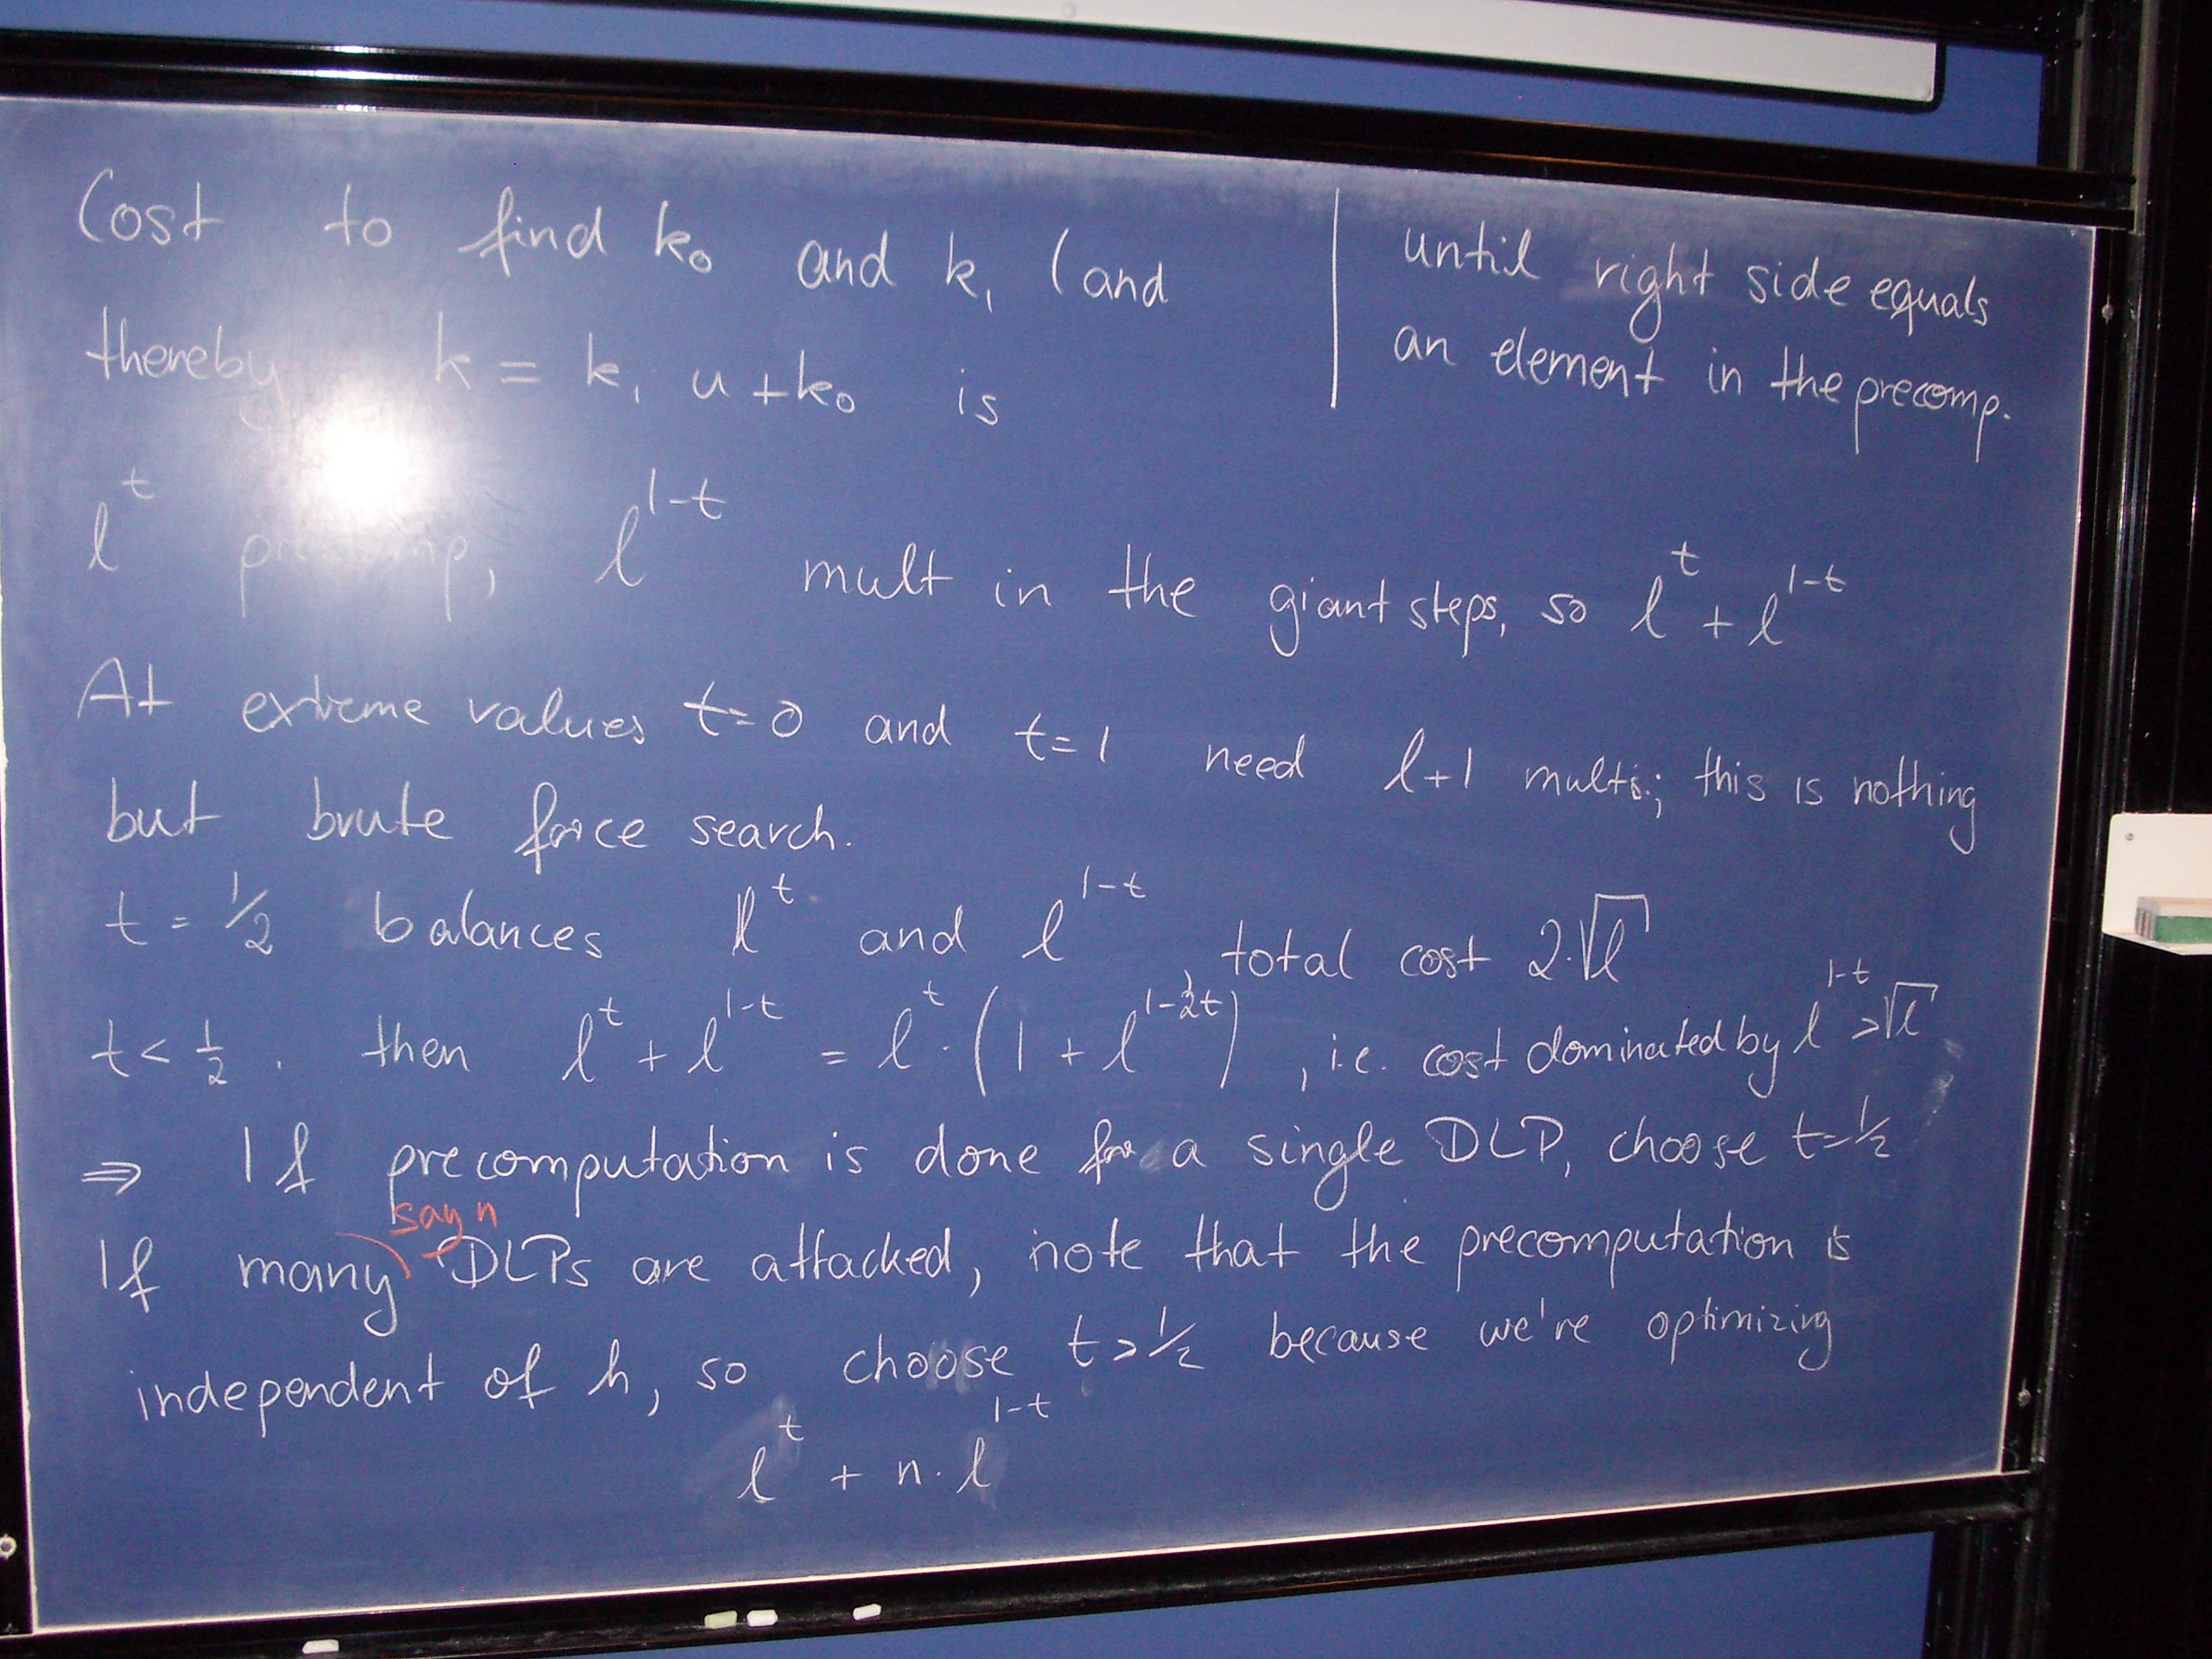 Cost to find k₀ and k₁ (and
thereby k = k₁ u + k₀ is
until right side equals
an element in the precomp.
l^t precomp, l^{1-t} mult in the giant steps, so l^t + l^{1-t}
At extreme values t=0 and t=1 need l+1 mults; this is nothing
but brute force search.
t = 1/2 balances l^t and l^{1-t}, total cost 2·√l
t < 1/2 . then l^t + l^{1-t} = l^t · (1 + l^{1-2t}) , i.e. cost dominated by l^{1-t} > √l
⇒ If precomputation is done for a single DLP, choose t=1/2
say n
If many DLPs are attacked, note that the precomputation is
independent of h, so choose t>1/2 because we're optimizing
l^t + n·l^{1-t}